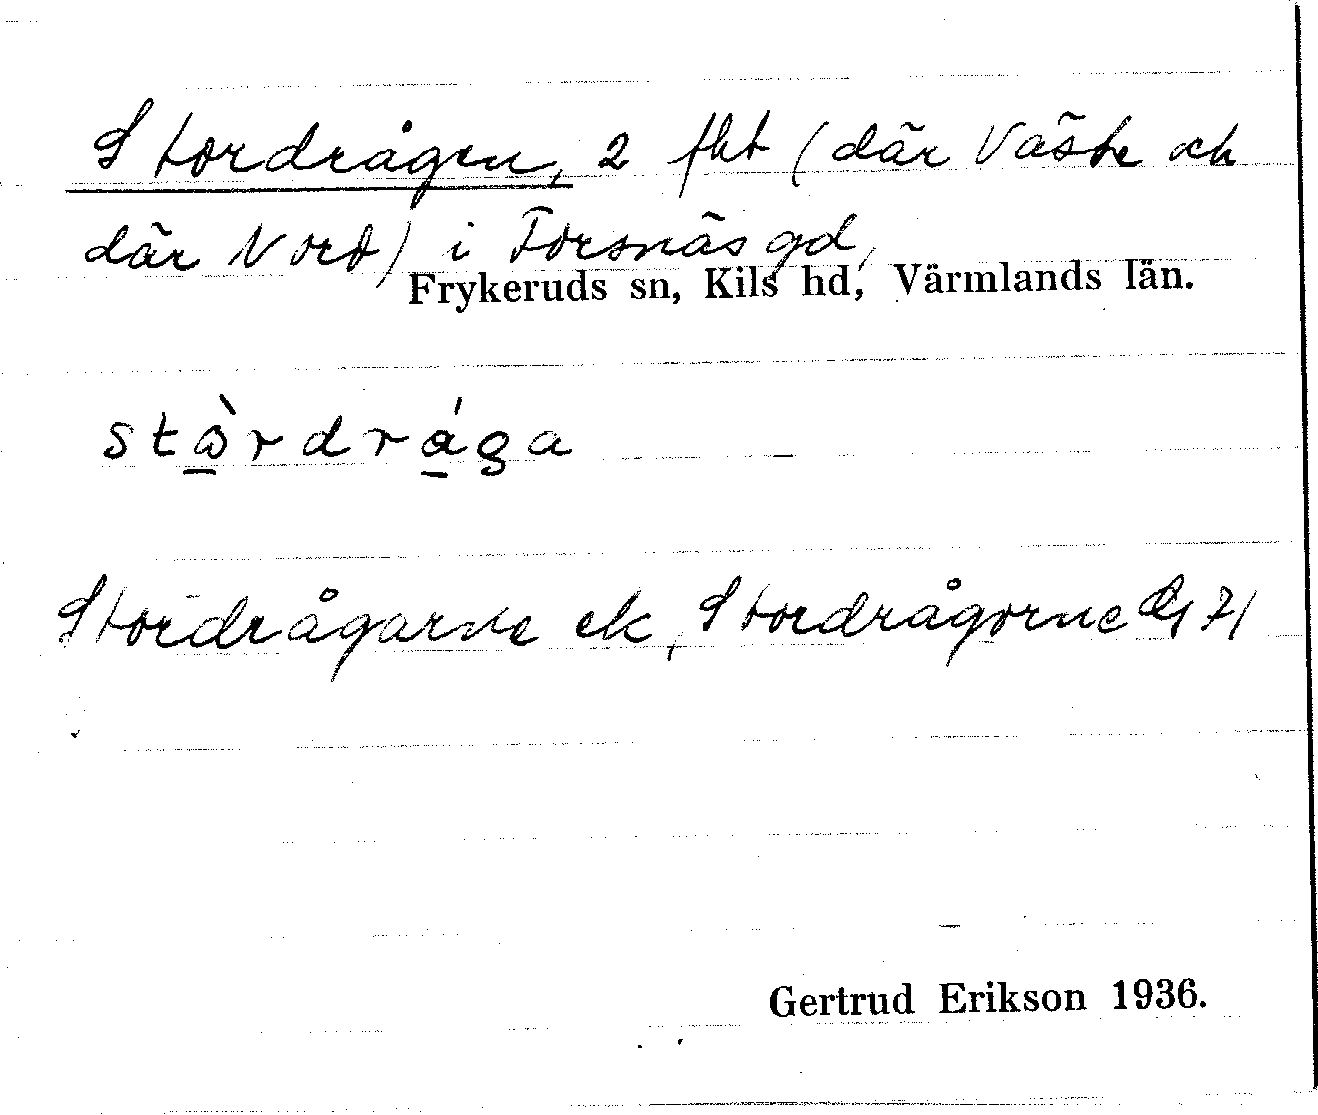 Stordrågen, 2 fkt (där Väste och
där Nord) i Forsnäs gd,
Frykeruds sn, Kils hd, Värmlands län.
stɷ̠̀rdrá̠ga
Stordrågarne ek, Stordrågorne 71
Gertrud Erikson 1936.